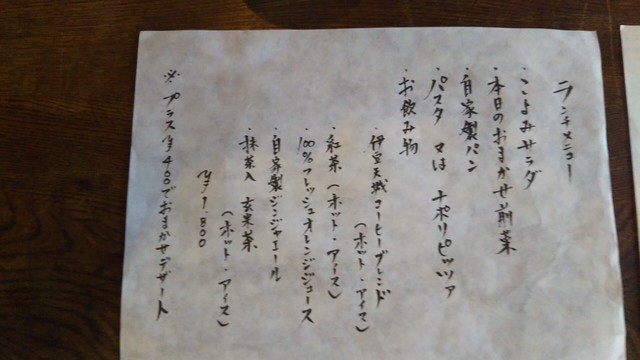 ランチメニュー
・こよみサラダ
・本日のおまかせ前菜
・自家製パン
・パスタ 又は ナポリピッツァ
・お飲み物
・伊豆天城コーヒーブレンド
(ホット・アイス)
・紅茶(ホット・アイス)
・100%フレッシュオレンジジュース
・自家製ジンジャエール
・抹茶入 玄米茶
(ホット・アイス)
¥1.800
※ プラス¥400でおまかせデザート